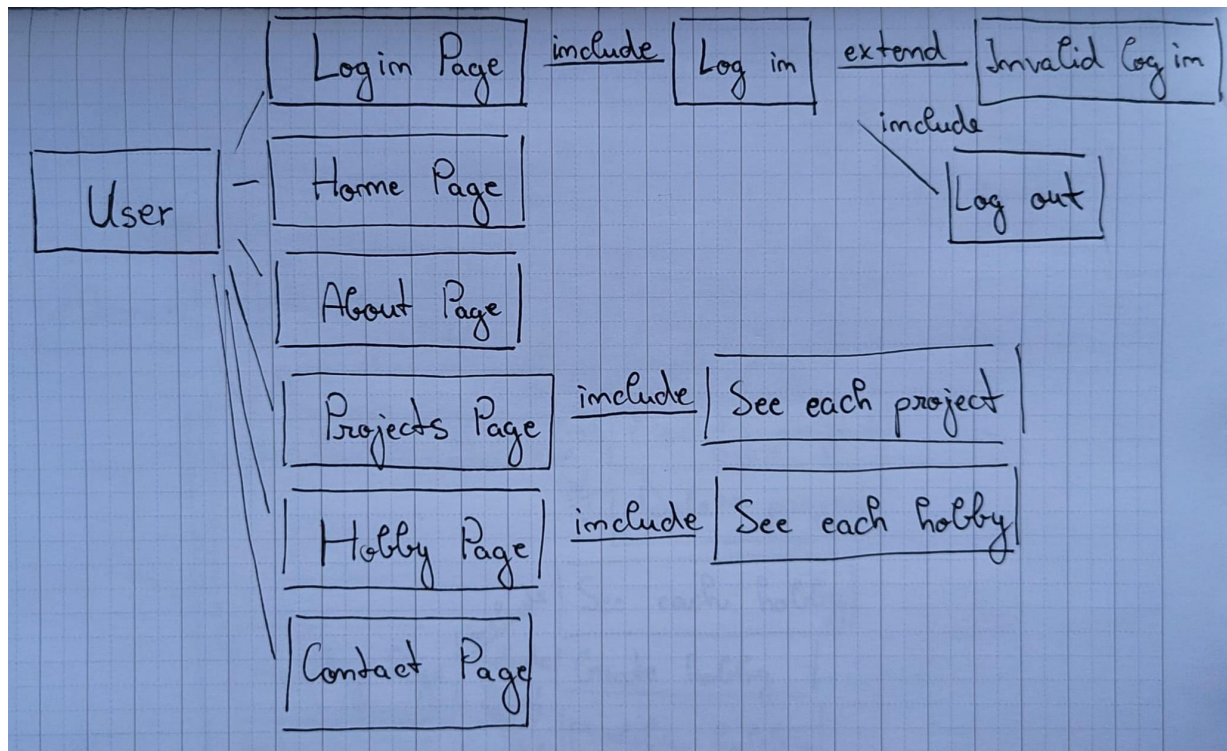 Login Page include Log in extend Invalid log in
include
User Home Page Log out
About Page
Projects Page include See each project
Hobby Page include See each hobby
Contact Page